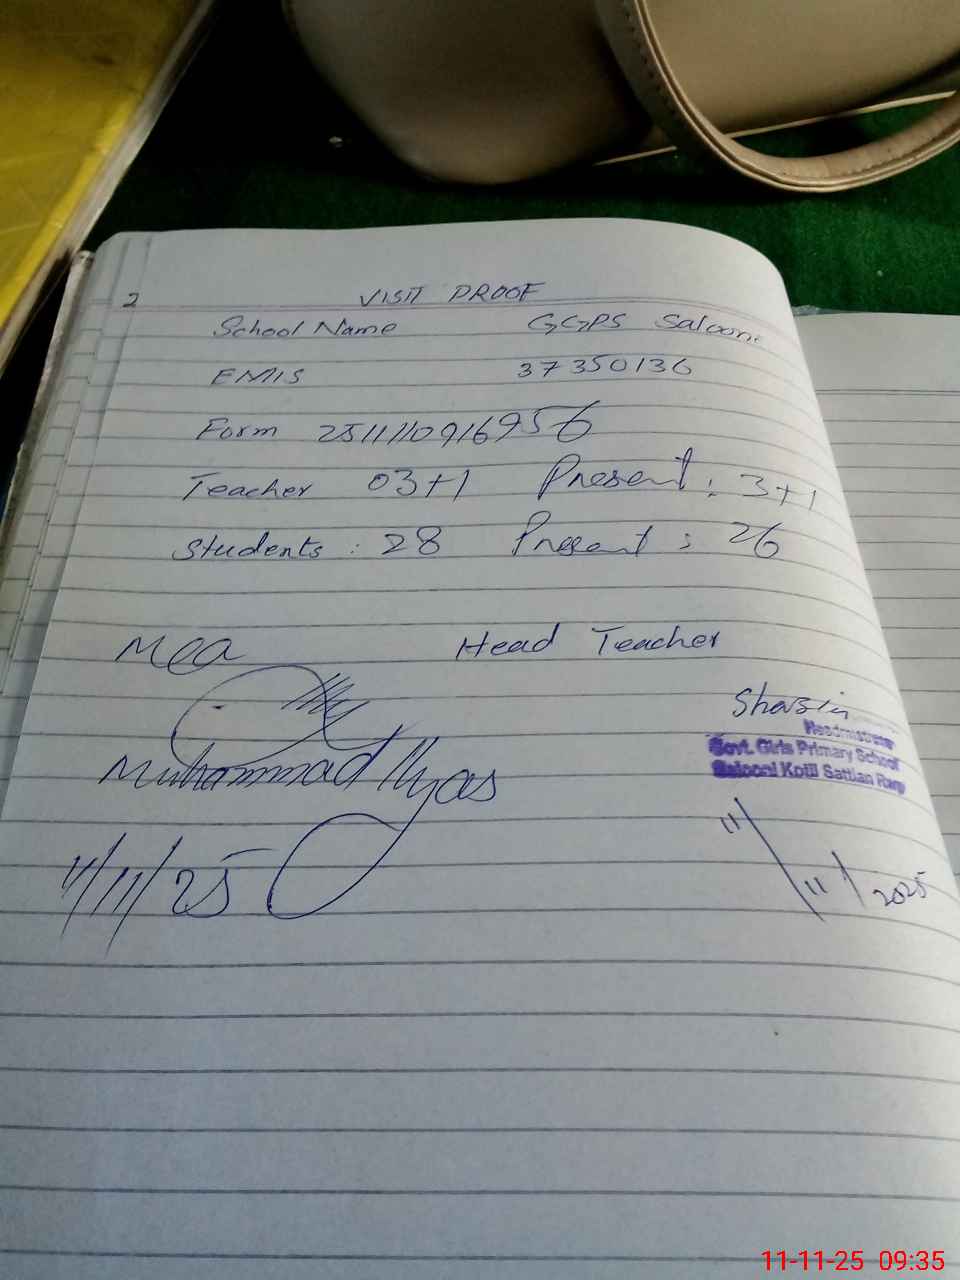 2
VISIT PROOF
School Name GGPS Salooni
EMIS 37350136
Form 2511110916956
Teacher 03+1 Present: 3+1
Students: 28 Present: 26
Mea Head Teacher
Muhammad Ilyas
Headmistress
Govt. Girls Primary School
Salooni Kotli Sattian Rwp
11/11/25
11/11/2025
11-11-25 09:35